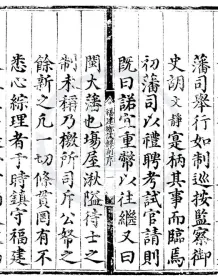 藩司舉行如制巡按監察御
史胡文靜寔柄其事而臨焉
初藩司以禮聘考試官請則
既曰諾宜重幣以往繼又曰
閩大藩也塲屋湫隘待士之
制未稱乃檄所司斥公帑之
餘新之凡一切條貫罔有不
悉心綜理者于時鎮守福建